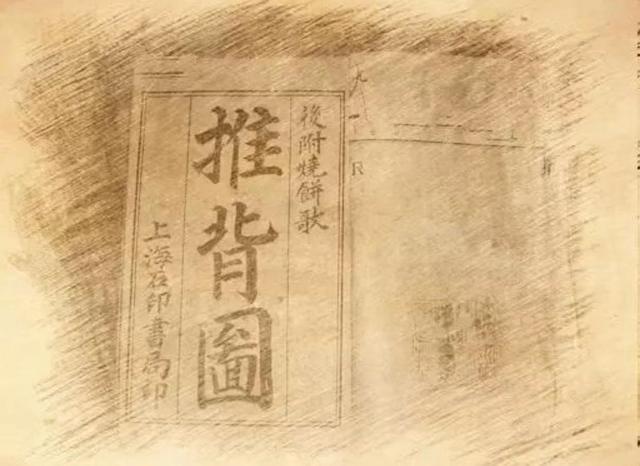 後附燒餅歌
推背圖
上海石印書局印
九
一
R